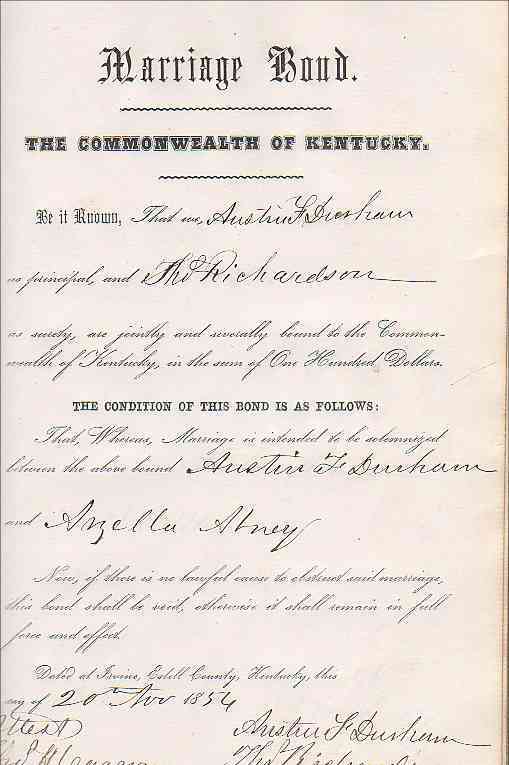 Marriage Bond.
THE COMMONWEALTH OF KENTUCKY.
Be it Known, That we, Austin F Durham
as principal, and Thos Richardson
as surety, are jointly and severally bound to the Common-
wealth of Kentucky, in the sum of One Hundred Dollars.
THE CONDITION OF THIS BOND IS AS FOLLOWS:
That, Whereas, Marriage is intended to be solemnized
between the above bound Austin F Durham
and Arzella Abney
Now, if there is no lawful cause to obstruct said marriage,
this bond shall be void, otherwise it shall remain in full
force and effect.
Dated at Irvine, Estill County, Kentucky, this
day of 20th Nov
Attest
Austin F Durham
Thos